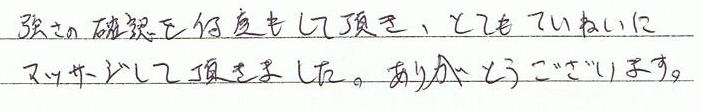 強さの確認を何度もして頂き、とてもていねいに
マッサージして頂きました。ありがとうございます。